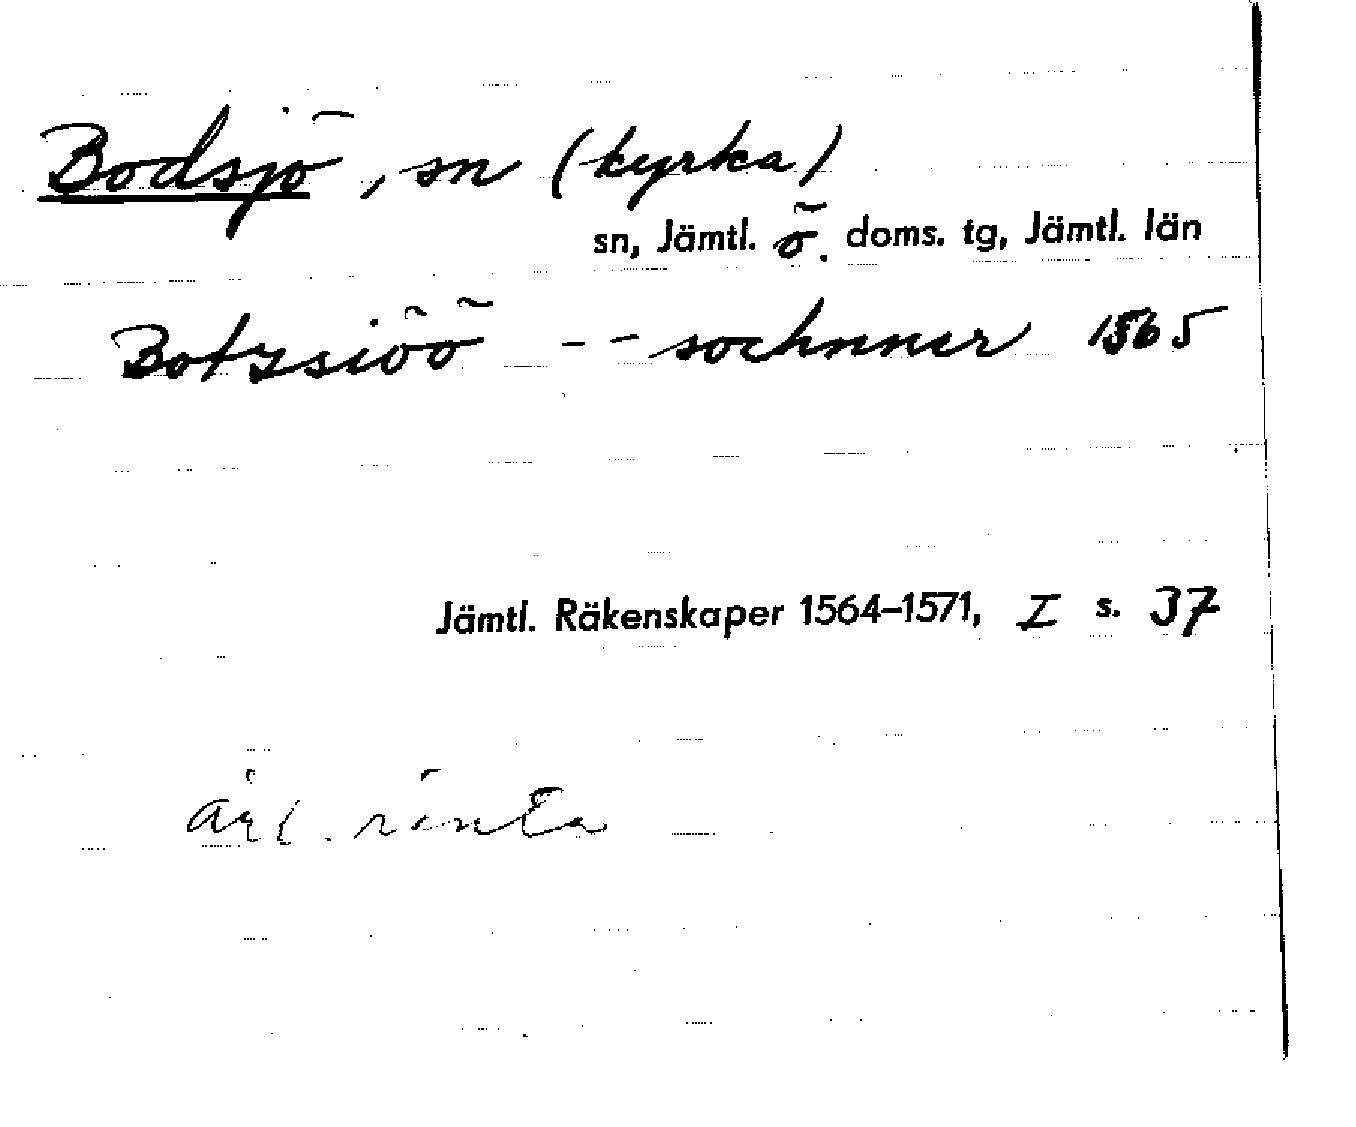 Bodsjö, sn (kyrka)
sn, Jämtl. ö. doms. tg, Jämtl. län
Botzsiöö -- sochnner 1565
Jämtl. Räkenskaper 1564–1571, I s. 37
årl. ränta